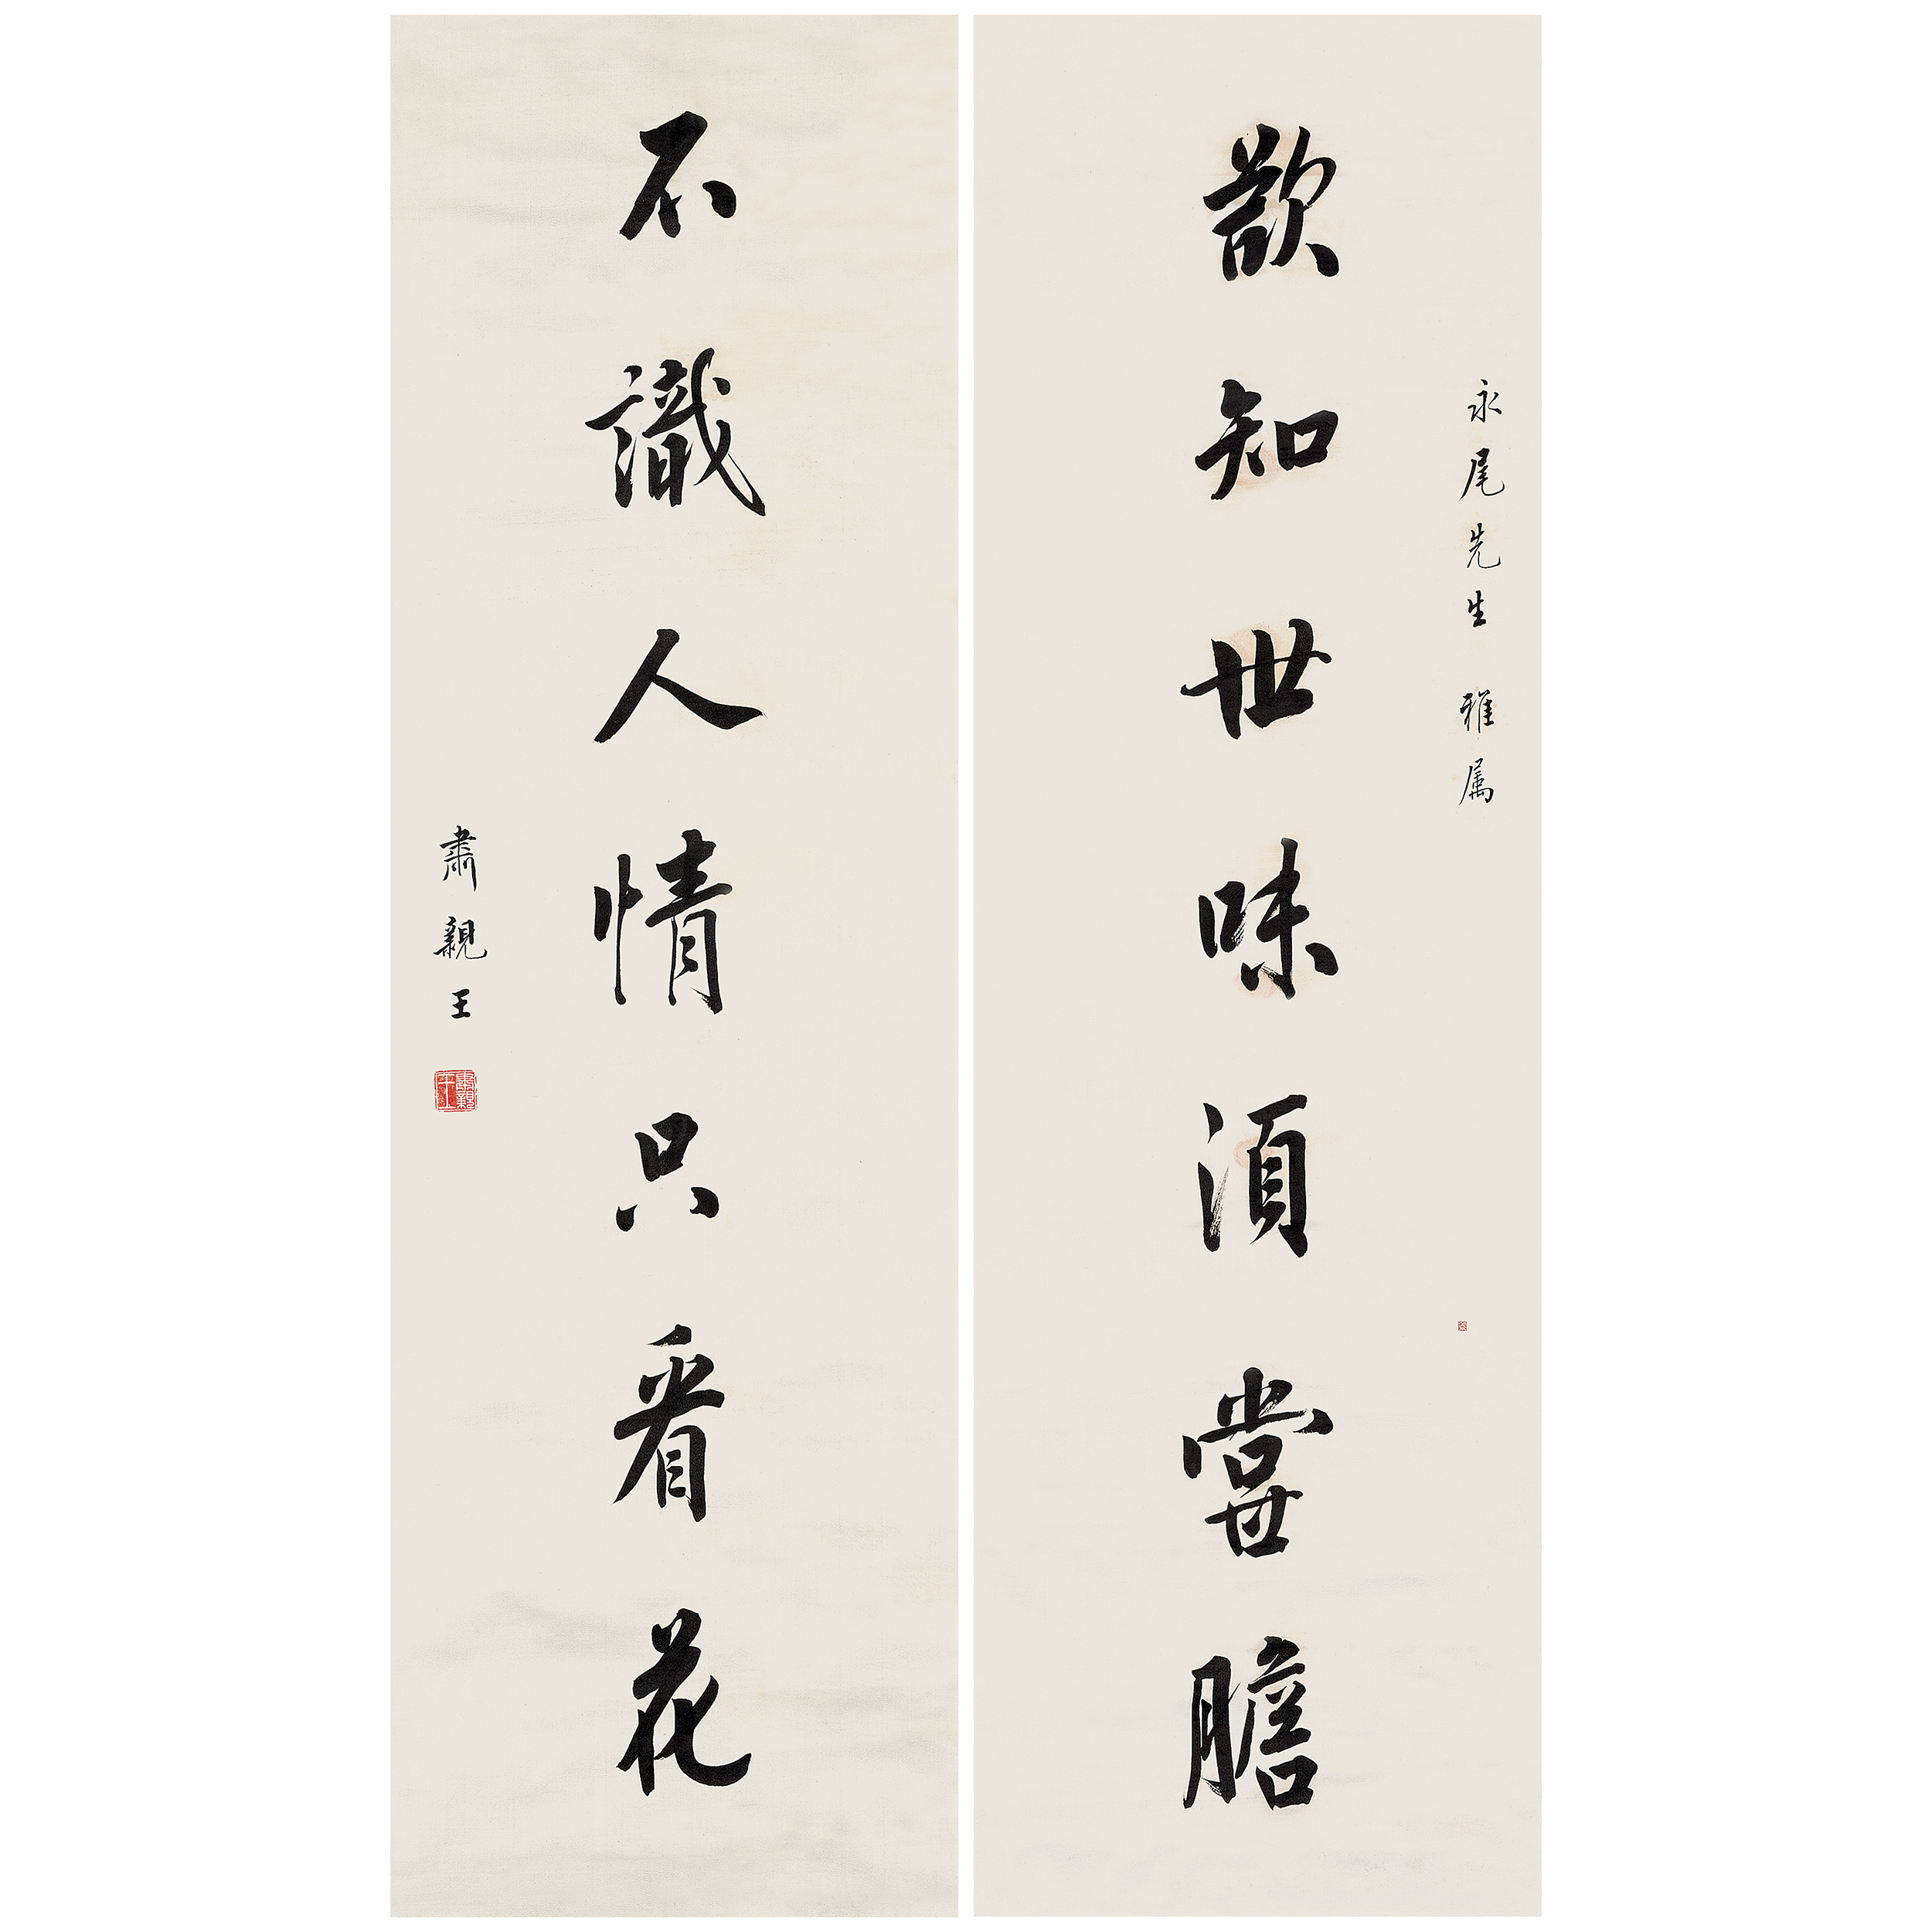 永尾先生 雅属
欲知世味須嘗膽
不識人情只看花
肅親王
肅親王